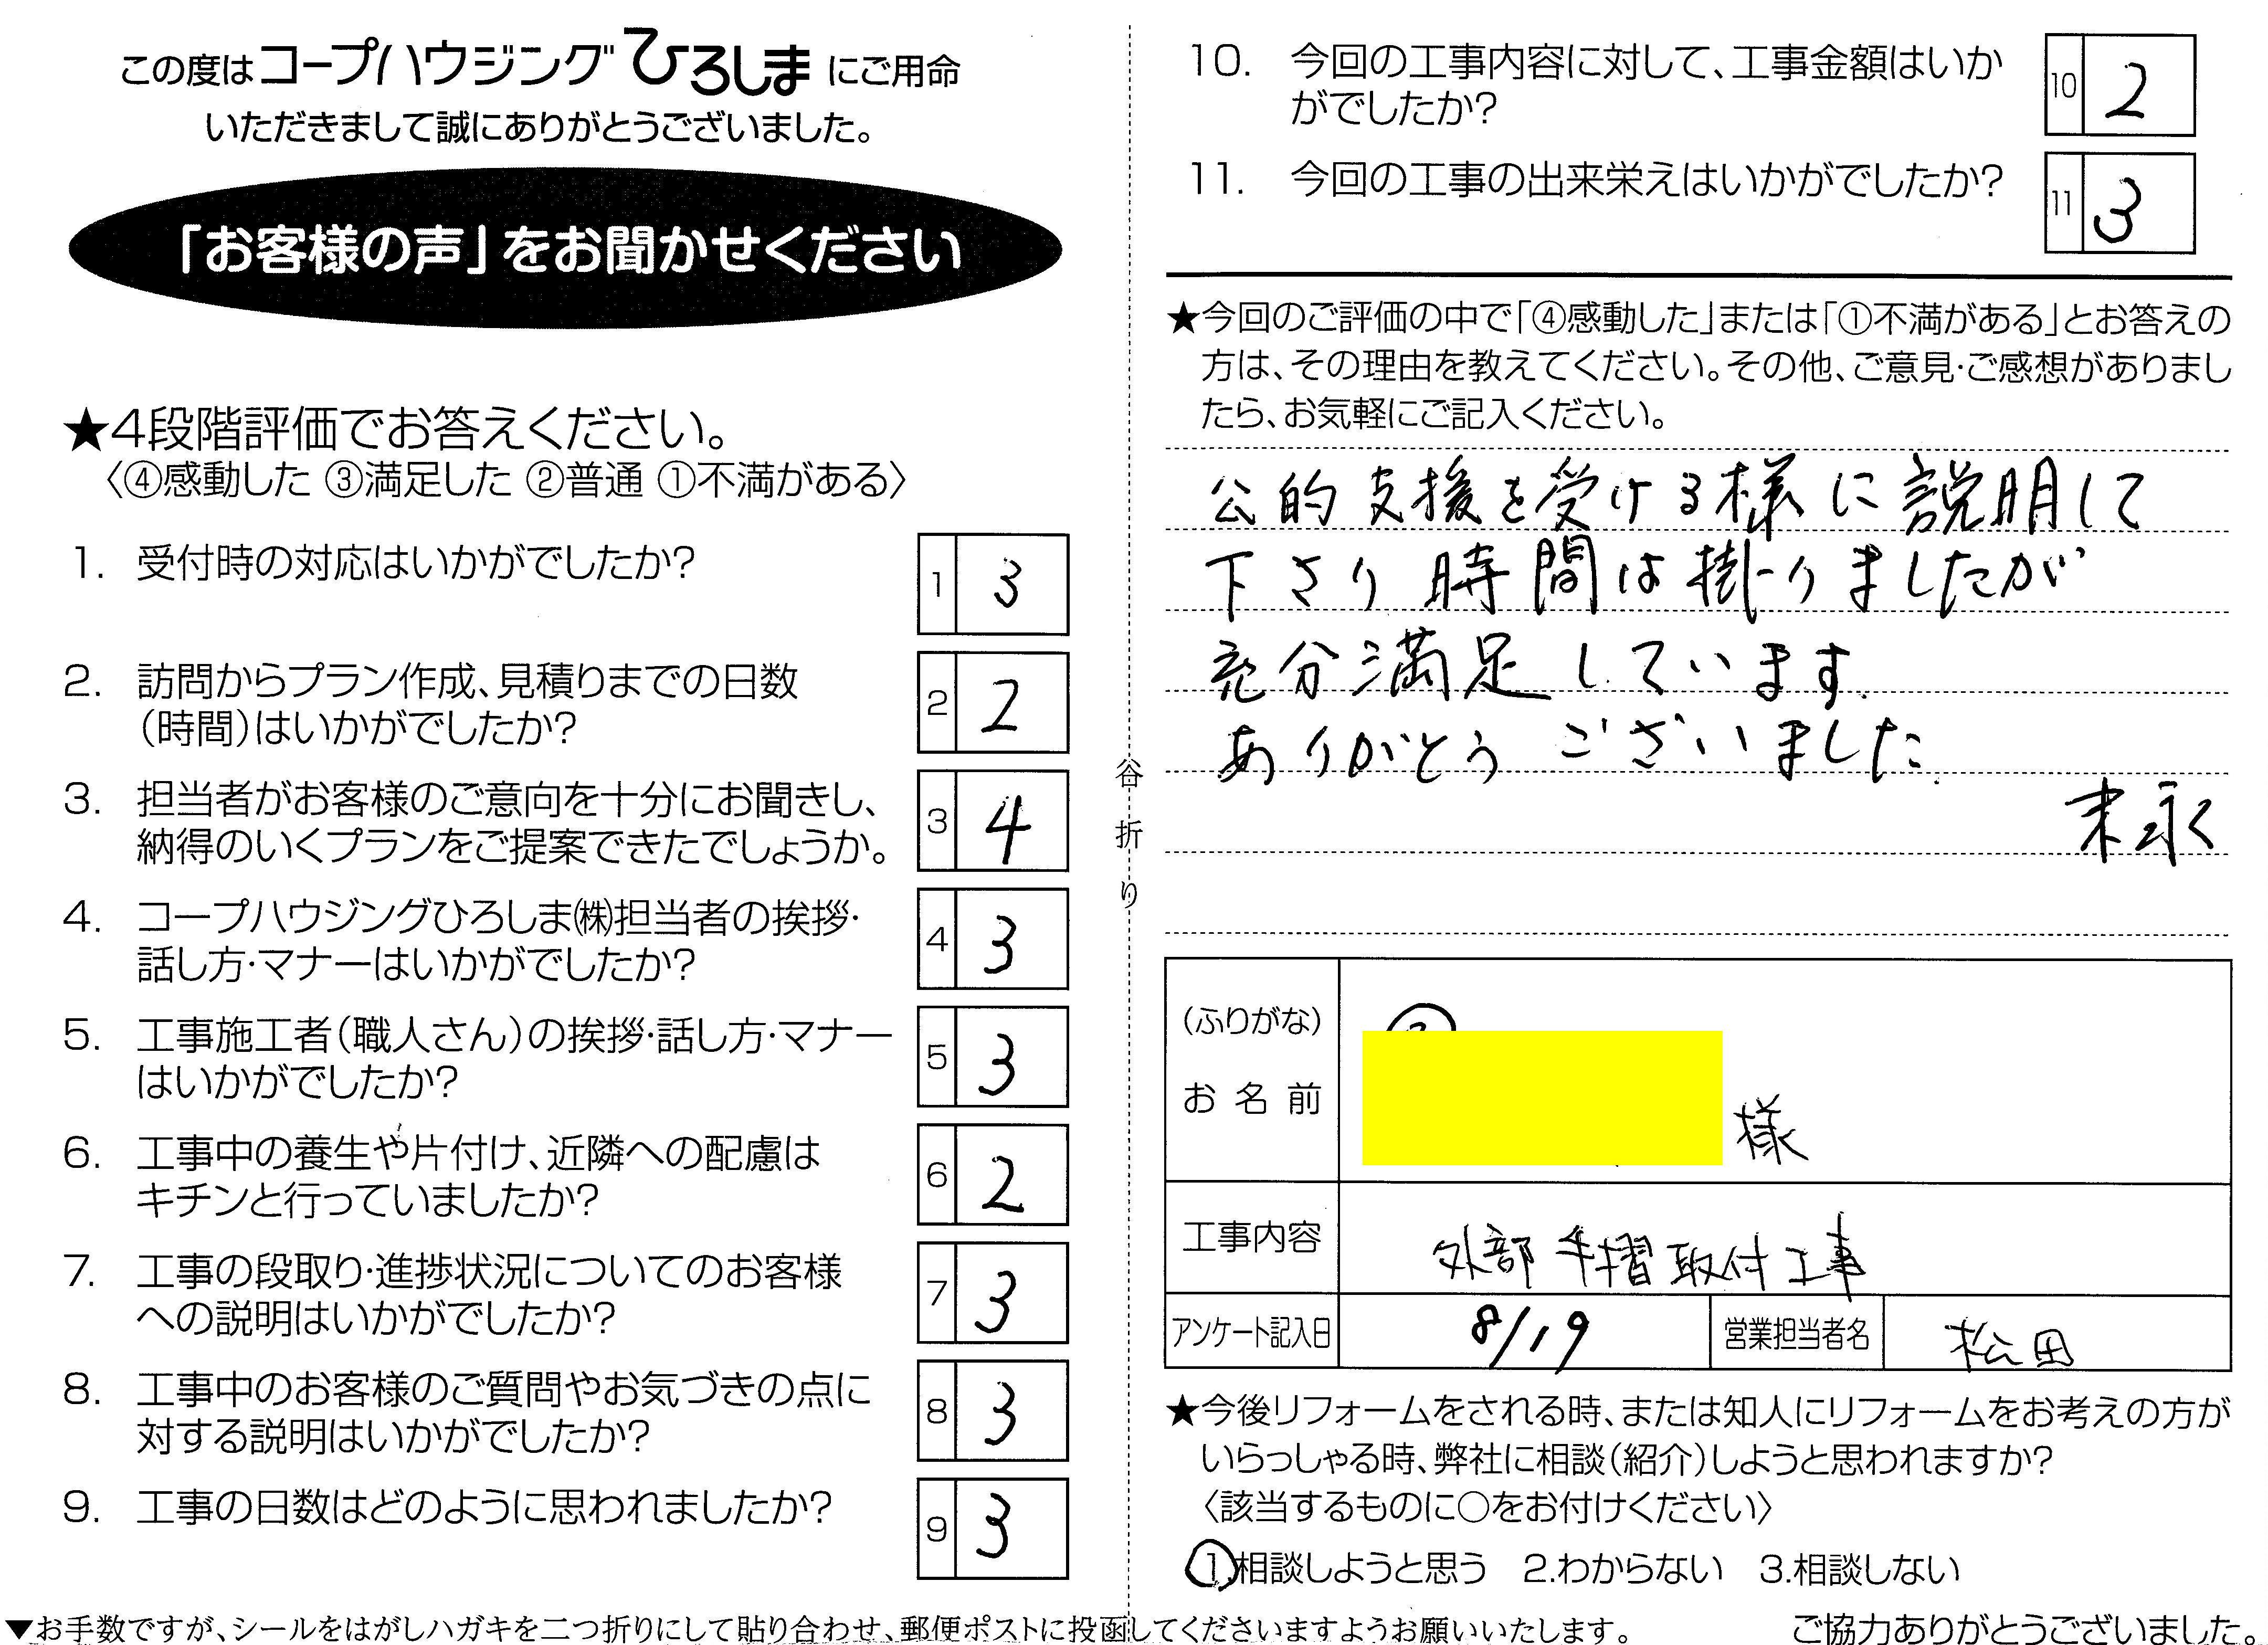 この度はコープハウジングひろしまにご用命
いただきまして誠にありがとうございました。
「お客様の声」をお聞かせください
★4段階評価でお答えください。
〈④感動した ③満足した ②普通 ①不満がある〉
1. 受付時の対応はいかがでしたか? 1 3
2. 訪問からプラン作成、見積りまでの日数
（時間）はいかがでしたか? 2 2
3. 担当者がお客様のご意向を十分にお聞きし、
納得のいくプランをご提案できたでしょうか。 3 4
4. コープハウジングひろしま㈱担当者の挨拶・
話し方・マナーはいかがでしたか? 4 3
5. 工事施工者（職人さん）の挨拶・話し方・マナー
はいかがでしたか? 5 3
6. 工事中の養生や片付け、近隣への配慮は
キチンと行っていましたか? 6 2
7. 工事の段取り・進捗状況についてのお客様
への説明はいかがでしたか? 7 3
8. 工事中のお客様のご質問やお気づきの点に
対する説明はいかがでしたか? 8 3
9. 工事の日数はどのように思われましたか? 9 3
谷折り
10. 今回の工事内容に対して、工事金額はいか
がでしたか? 10 2
11. 今回の工事の出来栄えはいかがでしたか? 11 3
★今回のご評価の中で「④感動した」または「①不満がある」とお答えの
方は、その理由を教えてください。その他、ご意見・ご感想がありまし
たら、お気軽にご記入ください。
公的支援を受ける様に説明して
下さり時間は掛りましたが
充分満足しています.
ありがとうございました.
末永
（ふりがな）
お名前 様
工事内容 外部手摺取付工事
アンケート記入日 8/19 営業担当者名 松田
★今後リフォームをされる時、または知人にリフォームをお考えの方が
いらっしゃる時、弊社に相談（紹介）しようと思われますか?
〈該当するものに○をお付けください〉
1.相談しようと思う 2.わからない 3.相談しない
▼お手数ですが、シールをはがしハガキを二つ折りにして貼り合わせ、郵便ポストに投函してくださいますようお願いいたします。
ご協力ありがとうございました。